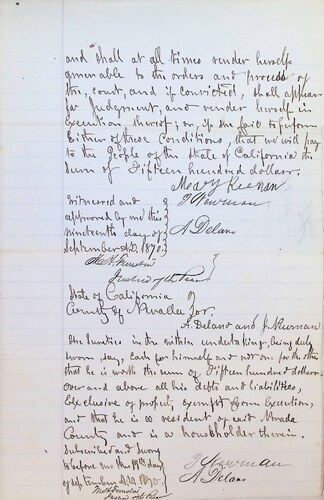 and shall at all times render herself
amenable to the orders and process of
the court, and if convicted, shall appear
for Judgment, and render herself in
Execution thereof; or, if she fail to perform
Either of these Conditions, that we will pay
to the People of the State of California the
Sum of Fifteen hundred dollars.
Mary Keenan
Witnessed and
approved by me this
nineteenth day of
September A.D. 1870.
J Newman
A Delano
Justice of the Peace
State of California
County of Nevada
A. Delano and J. Newman
the Sureties in the within undertaking, being duly
sworn say, Each for himself and not one for the other
that he is worth the sum of Fifteen hundred dollars
over and above all his debts and liabilities,
Exclusive of property exempt from Execution,
and that he is a resident of said Nevada
County and is a householder therein.
Subscribed and sworn
to before me this 19th day
of September A.D. 1870.
Justice of the Peace
J Newman
A Delano